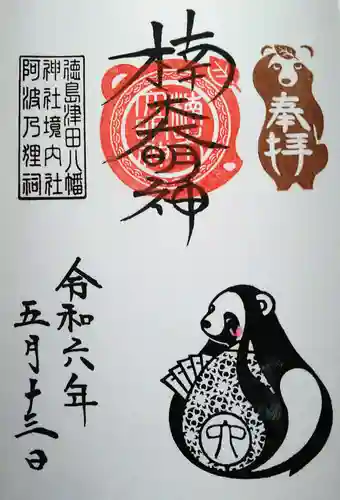 奉拝
楠大明神
徳島津田八幡
神社境内社
阿波乃狸祠
令和六年
五月十三日
六